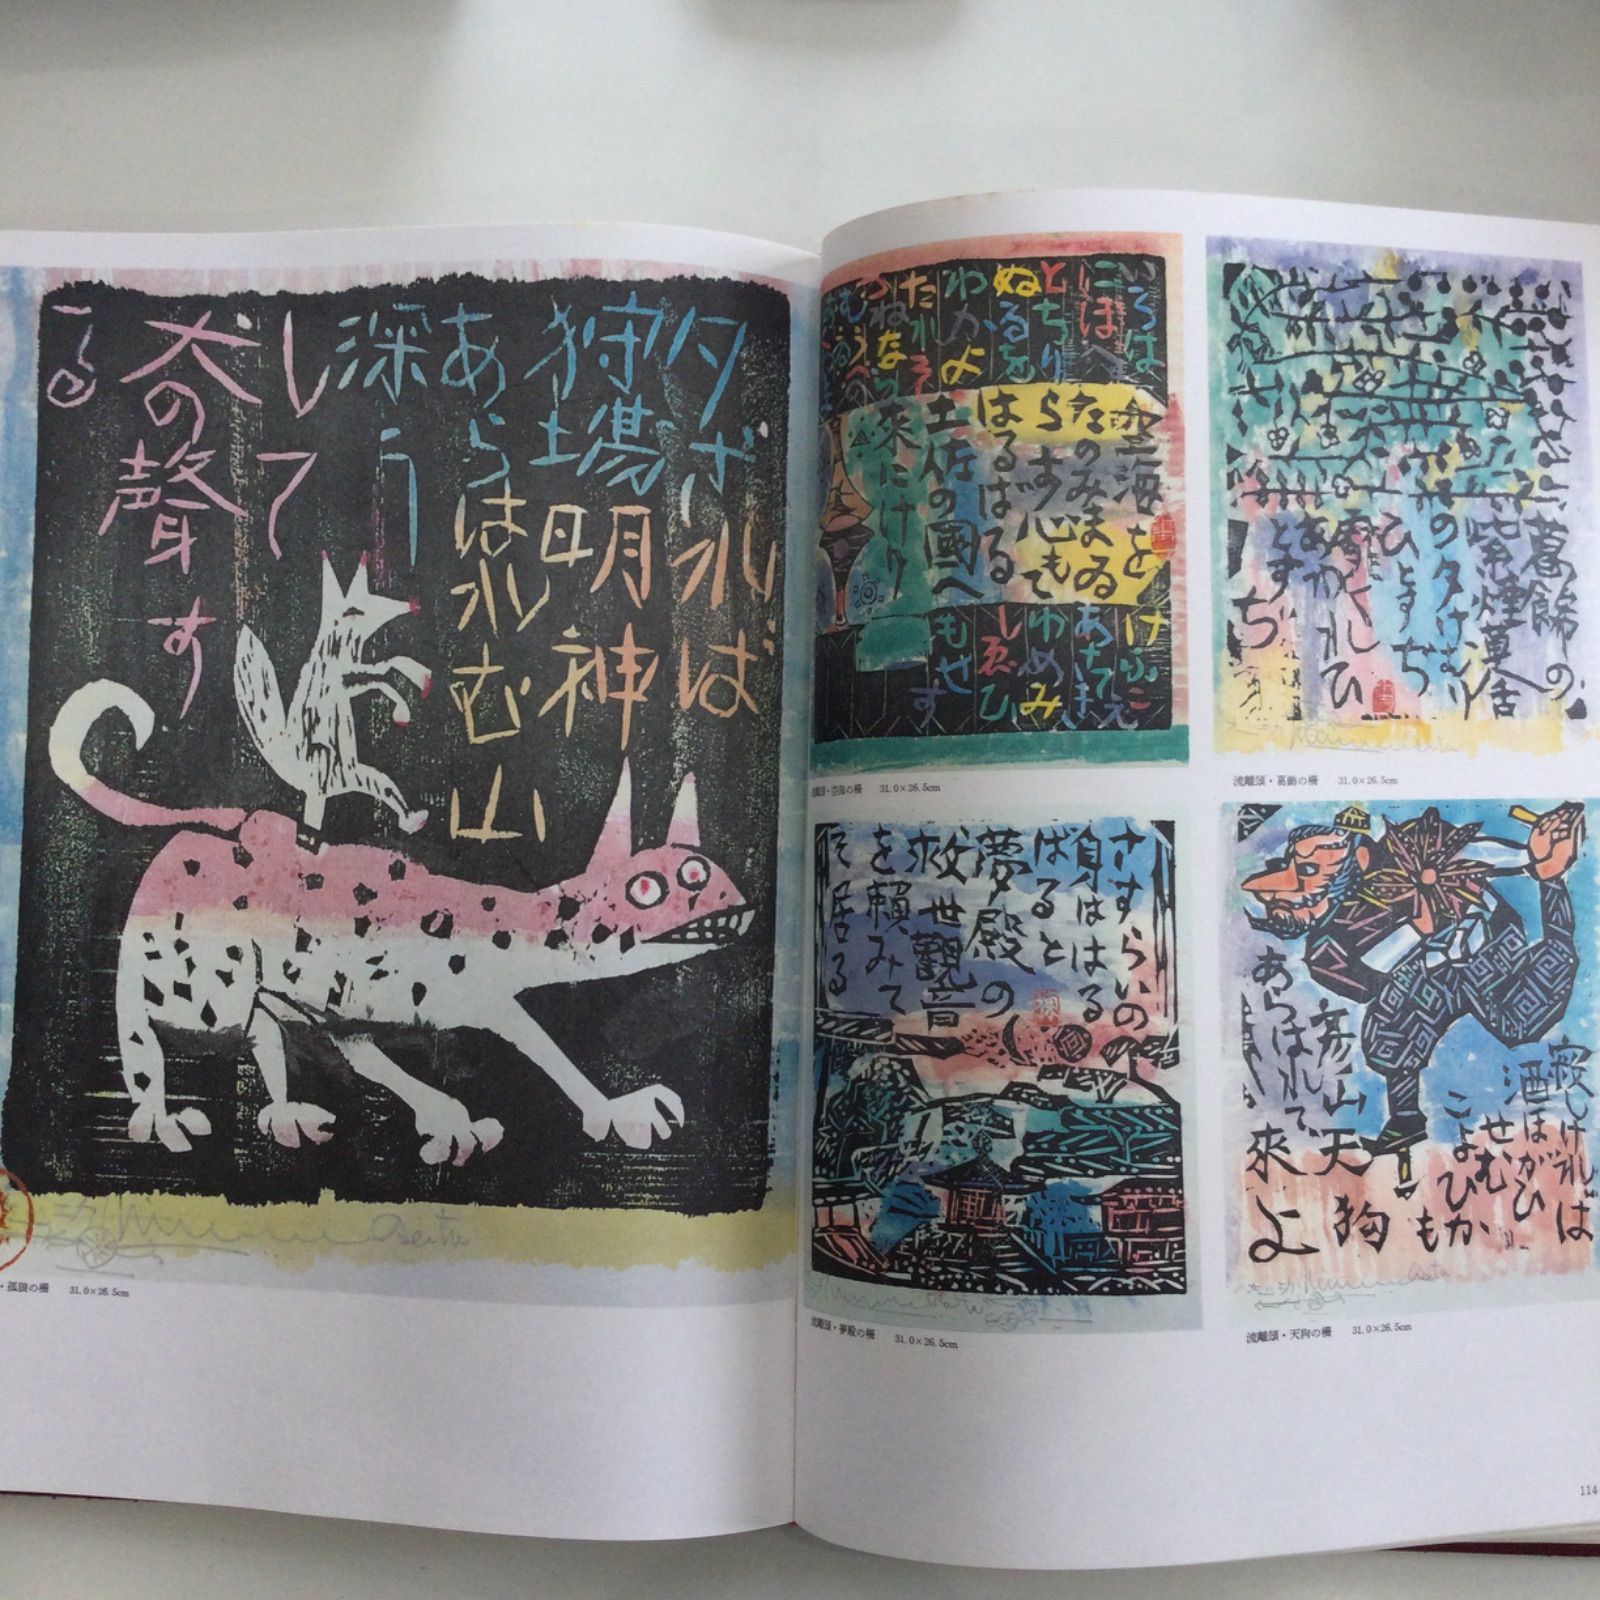 夕されば
狩場明神
あらはれむ山
深うして
犬の聲す
・孤狼の柵 31.0×26.5cm
いろは
にほへ
とちり
ぬるを
わかよ
たれそ
つねな
らむ
空海を
たのみまゐ
らす心もて
はるばる
土佐の國へ
來にけり
けふこえ
あさき
ゆめみ
しゑひ
もせす
流離頌・空海の柵 31.0×26.5cm
葛飾の
紫煙草舎
の夕けむり
ひとすぢ
あかれ
ひとすぢ
流離頌・葛飾の柵 31.0×26.5cm
さすらいの
身ははる
ばると
夢殿の
救世觀音
を賴みて
そ居る
流離頌・夢殿の柵 31.0×26.5cm
寂しければ
酒ほがひ
せむ
こよひかも
彦山天狗
あらはれて
來よ
流離頌・天狗の柵 31.0×26.5cm
114